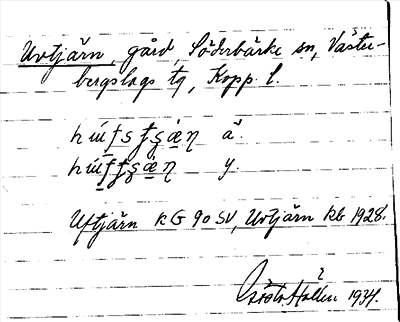 Uvtjärn, gård, Söderbärke sn, Väster-
bergslags tg, Kopp. l.
ä.
y.
Uftjärn KG 90 SV, Uvtjärn Kb 1928.
Gösta Hallén 1934.